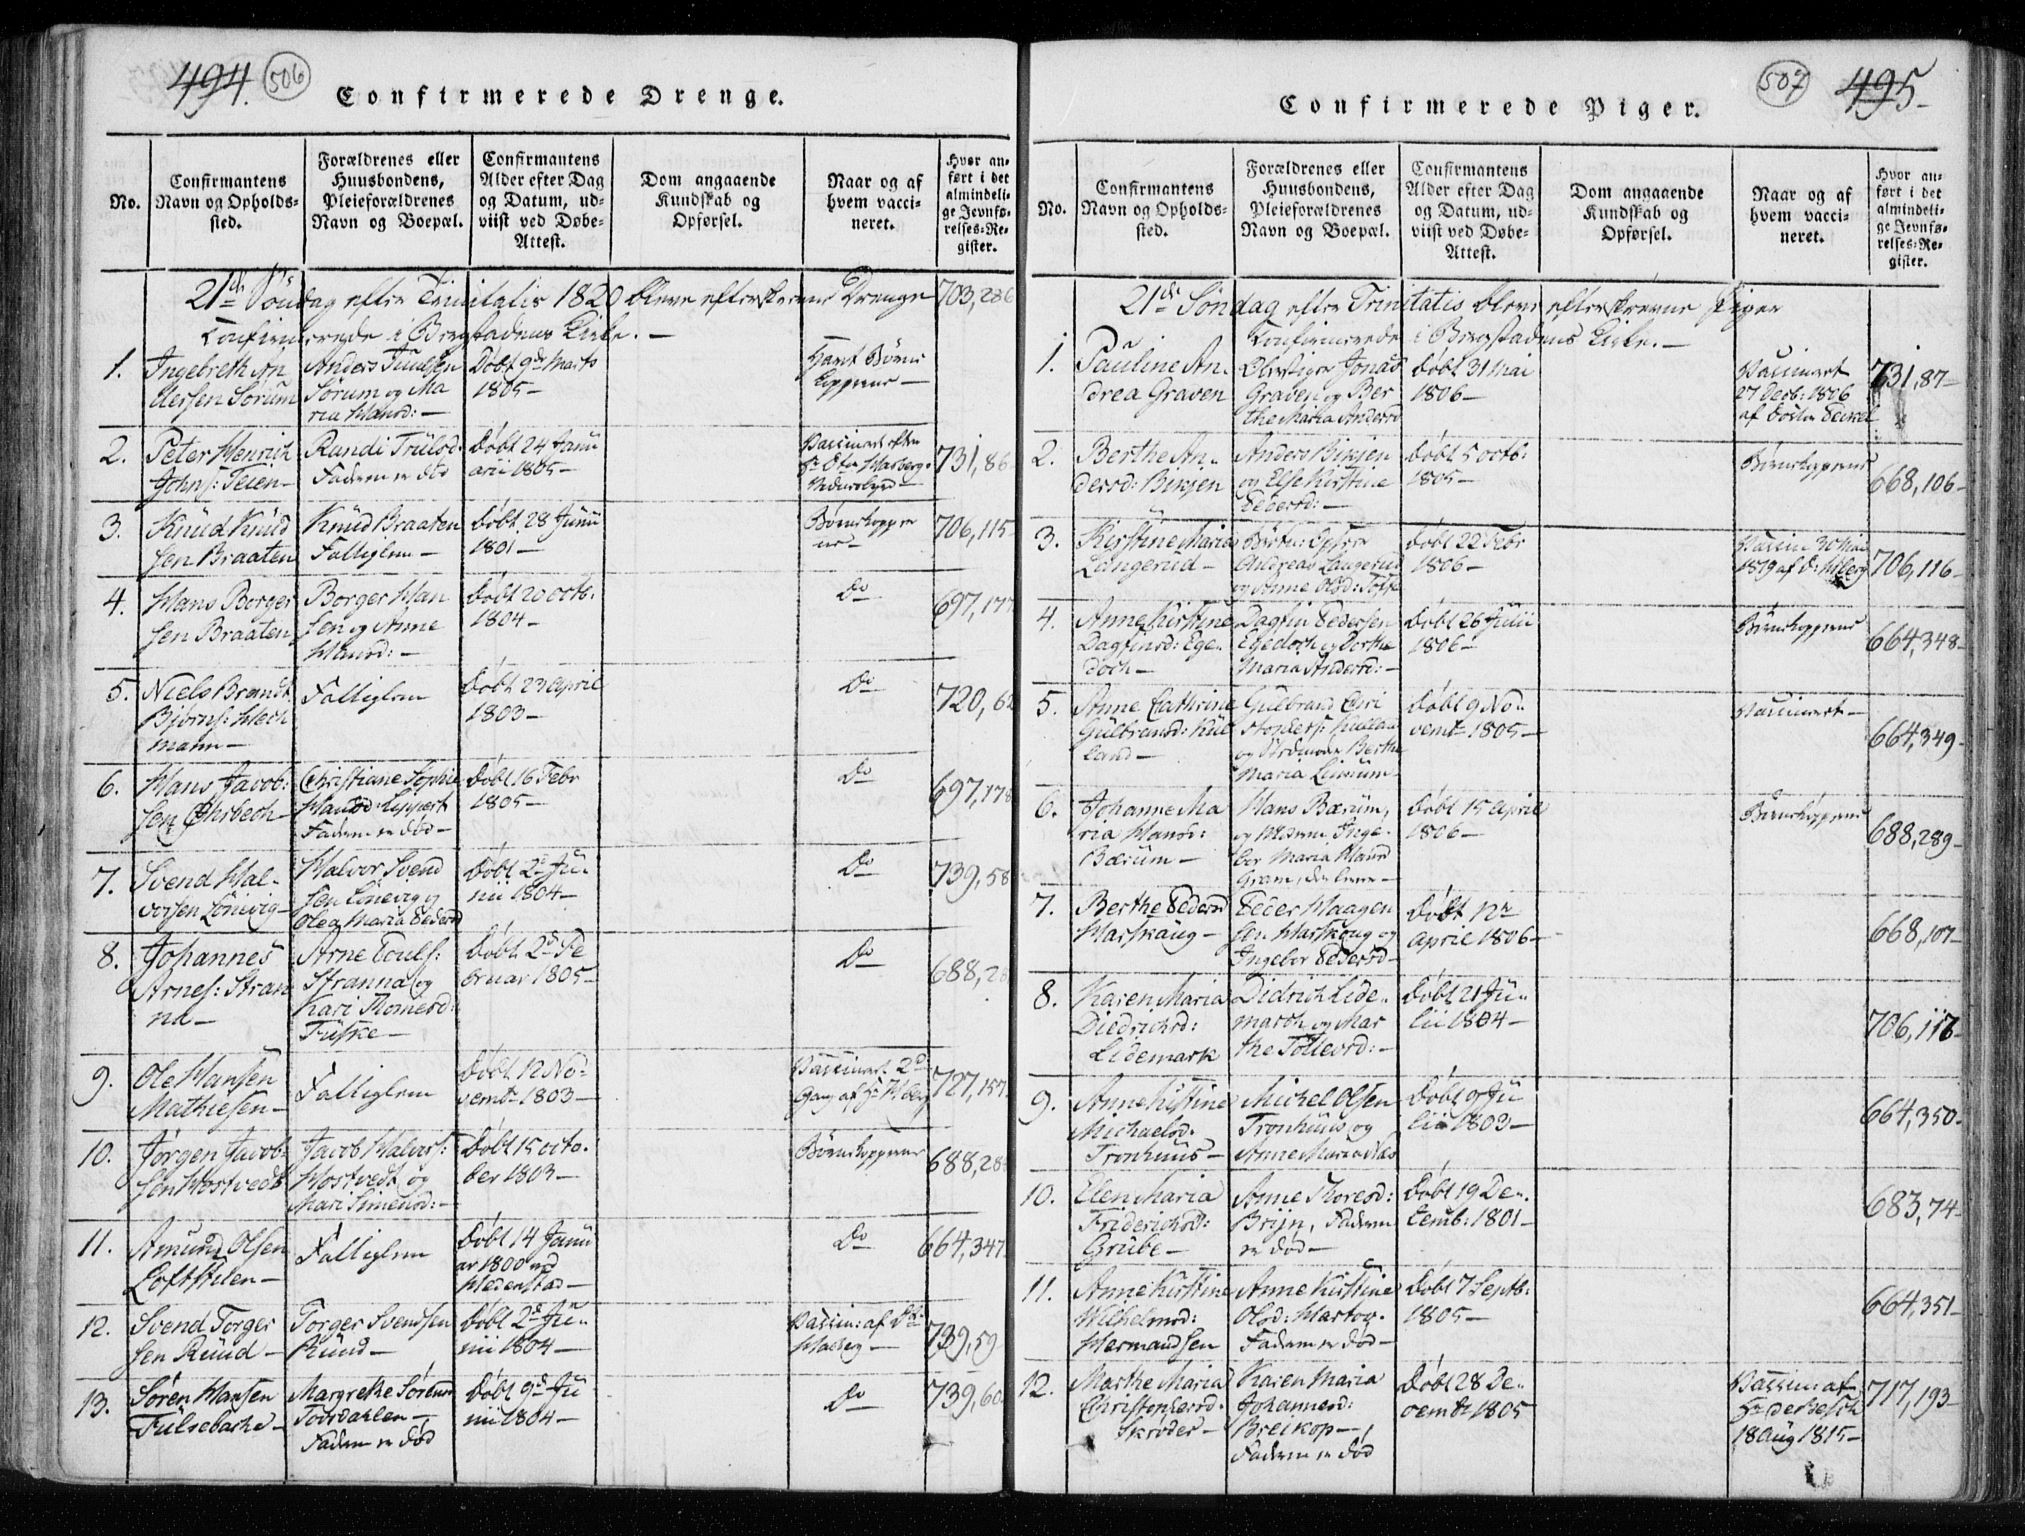 494. 506
Confirmerede Drenge.
No.
Confirmantens
Navn og Opholds-
sted.
Forældrenes eller
Huusbondens,
Pleieforældrenes
Navn og Boepæl.
Confirmantens
Alder efter Dag
og Datum, ud-
viist ved Døbe-
Attest.
Dom angaaende
Kundskab og
Opførsel.
Naar og af
hvem vacci-
neret.
Hvor an-
ført i det
almindeli-
ge Jevnfø-
relses-Re-
gister.
21de Søndag efter Trinitatis 1820 bleve efterskrevne Drenge 703,286
Confirmerede i Bergstadens Kirke. —
1.
Ingebreth An
dersen Sørum
Anders Juulsen
Sørum og Ma
ria Hansd: —
Døbt 9de Marts
1805 —
Havt Børne
kopperne —
2.
Peter Henrich
Johns: Teien —
Randi Trulsd:
Faderen er død
Døbt 24 Janu
arii 1805 —
731,86
3.
Knud Knud
sen Braaten
Knud Braaten
Fattiglem —
Døbt 28 Junii
1801 —
Børnekopper
ne —
706,115
4.
Hans Borger
sen Braaten
Borger Han
sen og Anne
Hansd: —
Døbt 20 octb:
1804 —
Do
697,177
5.
Niels Brandt
Bjørns: Hech
mann —
Fattiglem
Døbt 23 april
1803 —
Do
720,62
6.
Hans Jacob:
sen Ohrbech —
Christiane Sophie
Hansd: Lippert
Faderen er død —
Døbt 16 Febr
1805 —
Do
697,178
7.
Svend Hal-
vorsen Lönevig —
Halvor Svend
sen Lönevig og
Olea Maria Pedersd
Døbt 2d Ju-
nii 1804 —
Do
739,58
8.
Johannes
Arnes: Stran
na —
Arne Pouls:
Stranna og
Kari Thomesd:
Fuske —
Døbt 2d Fe
bruar 1805 —
Do
688,28
9.
Ole Hansen
Mathiesen —
Fattiglem
Døbt 12 No-
vembr 1803 —
Vaccinert 2d
Gang af Hr
727,157
10.
Jørgen Jacob-
sen Hostvedt
Jacob Halvors:
Hostvedt og
Mari Simensd: —
Døbt 15 octo:
ber 1803 —
Børnekopperne
688,28
11.
Amund Olsen
Loftstuen —
Fattiglem
Døbt 14 Janu
ar 1800 ved
Hedenstad —
Do
664,347
12.
Svend Torger
sen Ruud —
Torger Svendsen
Ruud —
Døbt 2d Ju-
nii 1804 —
Vaccin: af
739,59
13.
Søren Hansen
Fulsebakke —
Margrethe Sørensd
Toordahlen —
Faderen er død
Døbt 9d Ju
nii 1804 —
Do
739,60
507 495
Confirmerede Piger.
No.
Confirmantens
Navn og Opholds-
sted.
Forældrenes eller
Huusbondens,
Pleieforældrenes
Navn og Boepæl.
Confirmantens
Alder efter Dag
og Datum, ud-
viist ved Døbe-
Attest.
Dom angaaende
Kundskab og
Opførsel.
Naar og af
hvem vacci-
neret.
Hvor an-
ført i det
almindeli-
ge Jevnfø-
relses-Re-
gister.
21de Søndag efter Trinitatis bleve efterskrevne Piger
Confirmerede i Bergstadens Kirke. —
1.
Pauline An-
drea Graven
Oberstiger Jonas
Graven og Ber
the Maria Andersd
Døbt 31 Mai
1806 —
Vaccinert
27 Decb: 1806
af Doctor
731,87 —
2.
Berthe An-
dersd: Bingen
Anders Bingen
og Else Kirstine
Pedersd: —
Døbt 5 octb:
1805 —
Børnekopperne
668,106 —
3.
Kirstine Maria
Langerud —
Andreas Langerud
og Anne Olsd:
Døbt 22 Febr
1806 —
Vaccin 30 Mai
1819 af
706,116 —
4.
Anne Kirstine
Dagfinsd: Ege-
doch —
Dagfin Pedersen
Egedoch og Berthe
Maria Andersd: —
Døbt 26 Julii
1806 —
Børnekopperne
664,348 —
5.
Anne Cathrine
Gulbrandsd: Kul
land —
Gulbrand Chri
stophers: Kulland
og Stedmoder Berthe
Maria
Døbt 9 No-
vembr 1805 —
Vaccinert —
664,349 —
6.
Johanne Ma
ria Hansd:
Bærum —
Hans Bærum,
og Moderen Inge-
bor Maria Hansd
Gram, de leve —
Døbt 15 april
1806 —
Børnekopperne
688,289 —
7.
Berthe Pedersd
Harskaug —
Peder Haagen
sen Harskoug og
Ingebor Pedersd —
Døbt 12
april 1806 —
668,107 —
8.
Karen Maria
Diedrichsd:
Lidemark
Didrich Lide-
march og Mar
the Tollevsd: —
Døbt 21 Ju-
lii 1804 —
706,117 —
9.
Anne Kistine
Michaelsd:
Tronhuus —
Michel Olsen
Tronhuus og
Anne Maria
Døbt 9 Ju
lii 1803 —
664,350 —
10.
Elen Maria
Friderichsd:
Grube —
Anne Thoresd:
Brijn, Faderen
er død —
Døbt 19 De-
cemb: 1801 —
683,74 —
11.
Anne Kirstine
Wilhelmsd:
Hermandsen
Anne Kirstine
Olsd: Hartog.
Faderen er død —
Døbt 7 Septb:
1805 —
664,351 —
12.
Marthe Maria
Christensensd:
Skrøder —
Karen Maria
Johannesd:
Breikop —
Faderen er død
Døbt 28 De-
cembr 1805
Vaccin: af
Hr de Besche
18 Aug 1815 —
717,193 —